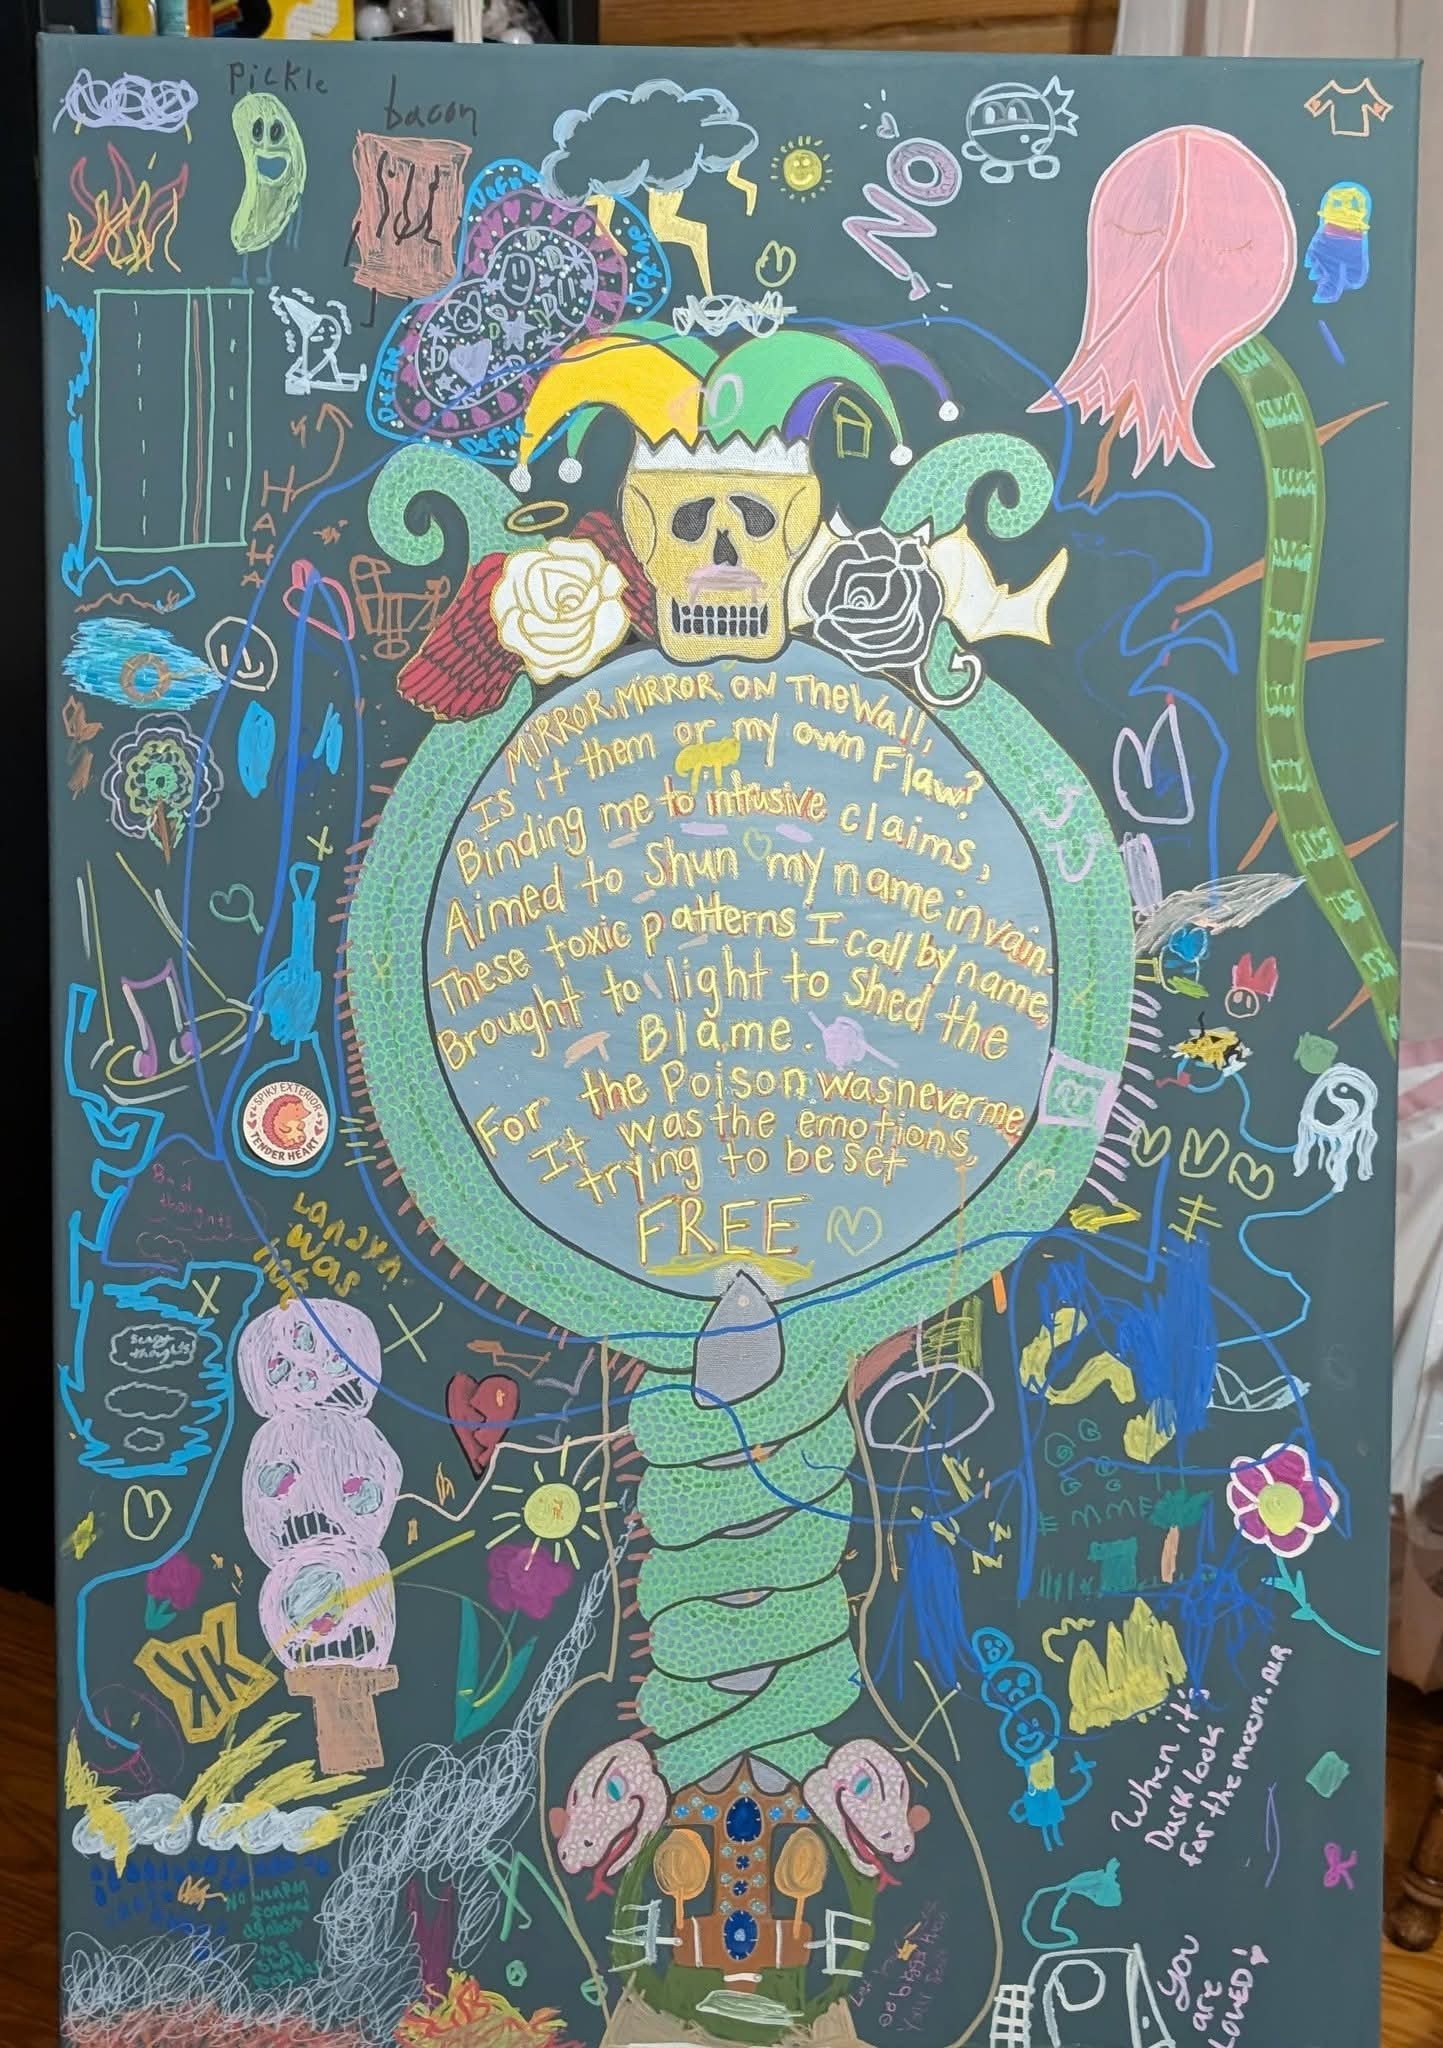 Pickle
bacon
Define
Define
Define
Define
NO
HAHA
MiRROR, MiRROR ON ThE Wall,
Is it them or my own Flaw?
Binding me to intrusive claims,
Aimed to Shun my name in vain.
These toxic patterns I call by name,
Brought to light to Shed the
Blame.
For the Poison was never me,
It was the emotions,
trying to be set
FREE
SPIKY EXTERIOR
TENDER HEART
Bad
thoughts
Landyn
was
Scary
thoughts
When it's
Dark look
for the moon.
NO WEAPON
Formed
against
me
shall
You
are
LOVED!